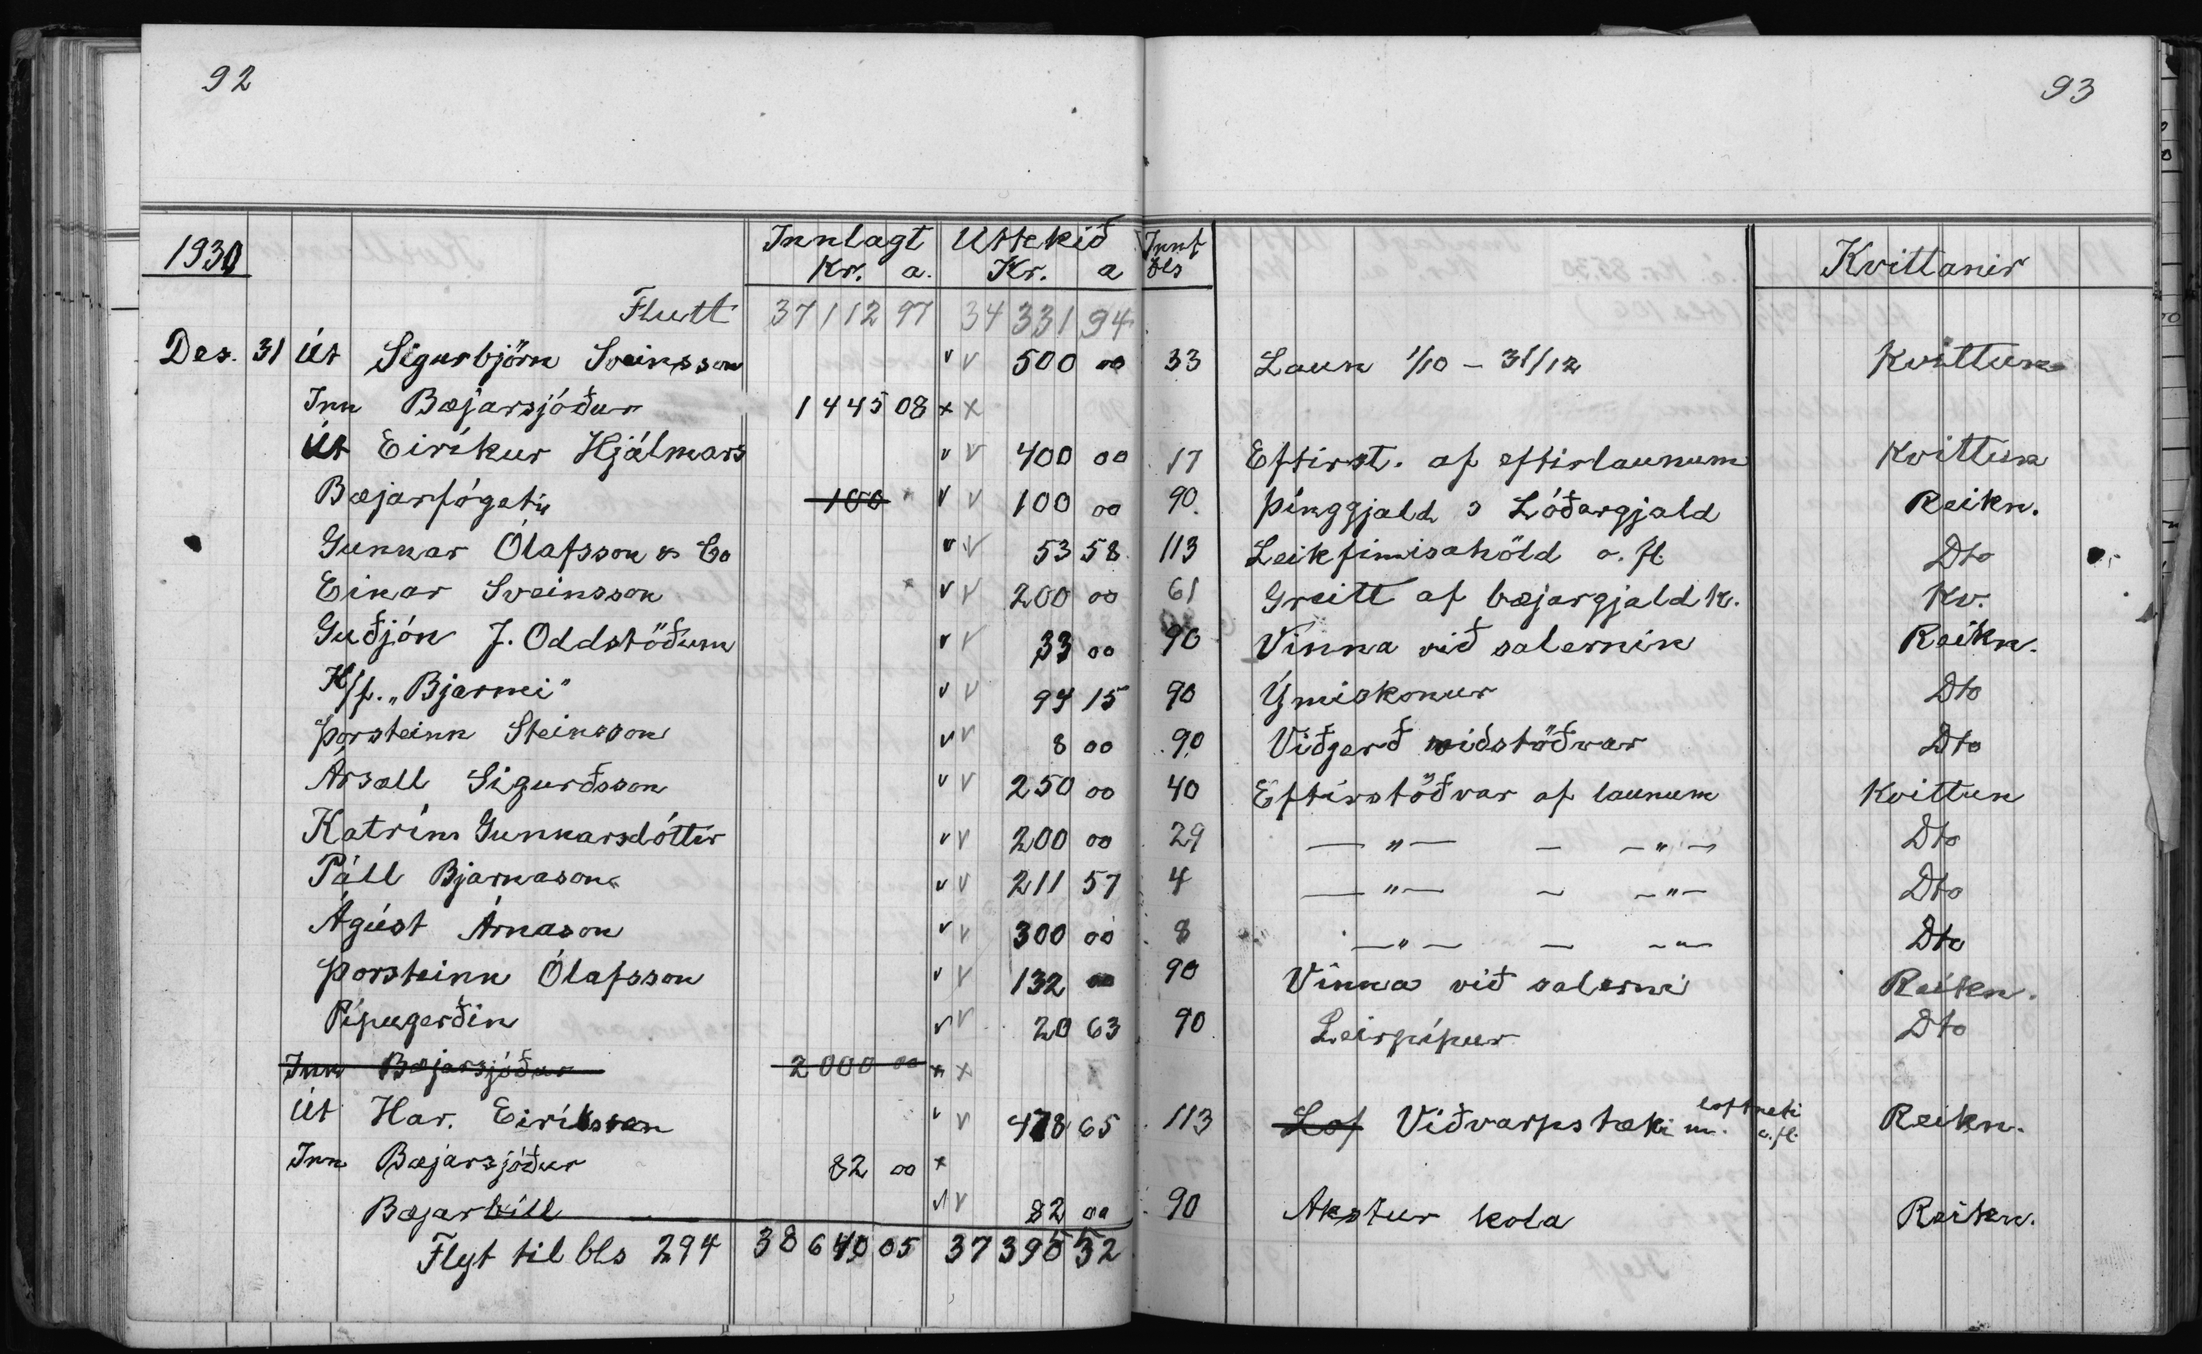 92
93
1930 Innlagt Uttekið Innf Kvittanir
Kr. a. Kr. a bls
Flutt 37112 97 34331 94
Des. 31 Út Sigurbjörn Sveinsson v v 500 00 33 Laun 1/10 – 31/12 Kvittun
Inn Bæjarsjóður 1445 08 x x
Út Eiríkur Hjálmars v v 400 00 17 Eftirst. af eftirlaunum Kvittun
Bæjarfógeti 100 v v 100 00 90. Þinggjald & Lóðargjald Reikn.
Gunnar Ólafsson & Co v v 53 58 113 Leikfimisahöld o. fl. Dto
Einar Sveinsson v v 200 00 61 Greitt af bæjargjaldk. Kv.
Guðjón J. Oddstöðum v v 33 00 90 Vinna við salernin Reikn.
H/f. „Bjarmi" v v 94 15 90 Ýmiskonur Dto
Þorsteinn Steinsson v v 8 00 90 Viðgerð miðstöðvar Dto
Ársæll Sigurðsson v v 250 00 40 Eftirstöðvar af launum Kvittun
Katrín Gunnarsdóttir v v 200 00 29 — „ — — — „ — Dto
Páll Bjarnason v v 211 57 4 — „ — — — „ — Dto
Ágúst Árnason v v 300 00 8 — „ — — — „ — Dto
Þorsteinn Ólafsson v v 132 00 90 Vinna við salerni Reikn.
Pípugerðin v v 20 63 90 Leirpípur Dto
Inn Bæjarsjóður 2000 00 x x
Út Har. Eiríksson v v 478 65 113 Lof Viðvarpstæki m. loftneti o. fl. Reikn.
Inn Bæjarsjóður 82 00 x
Bæjarbíll v v 82 00 90 Akstur kola Reikn.
Flyt til bls 294 38640 05 37395 52